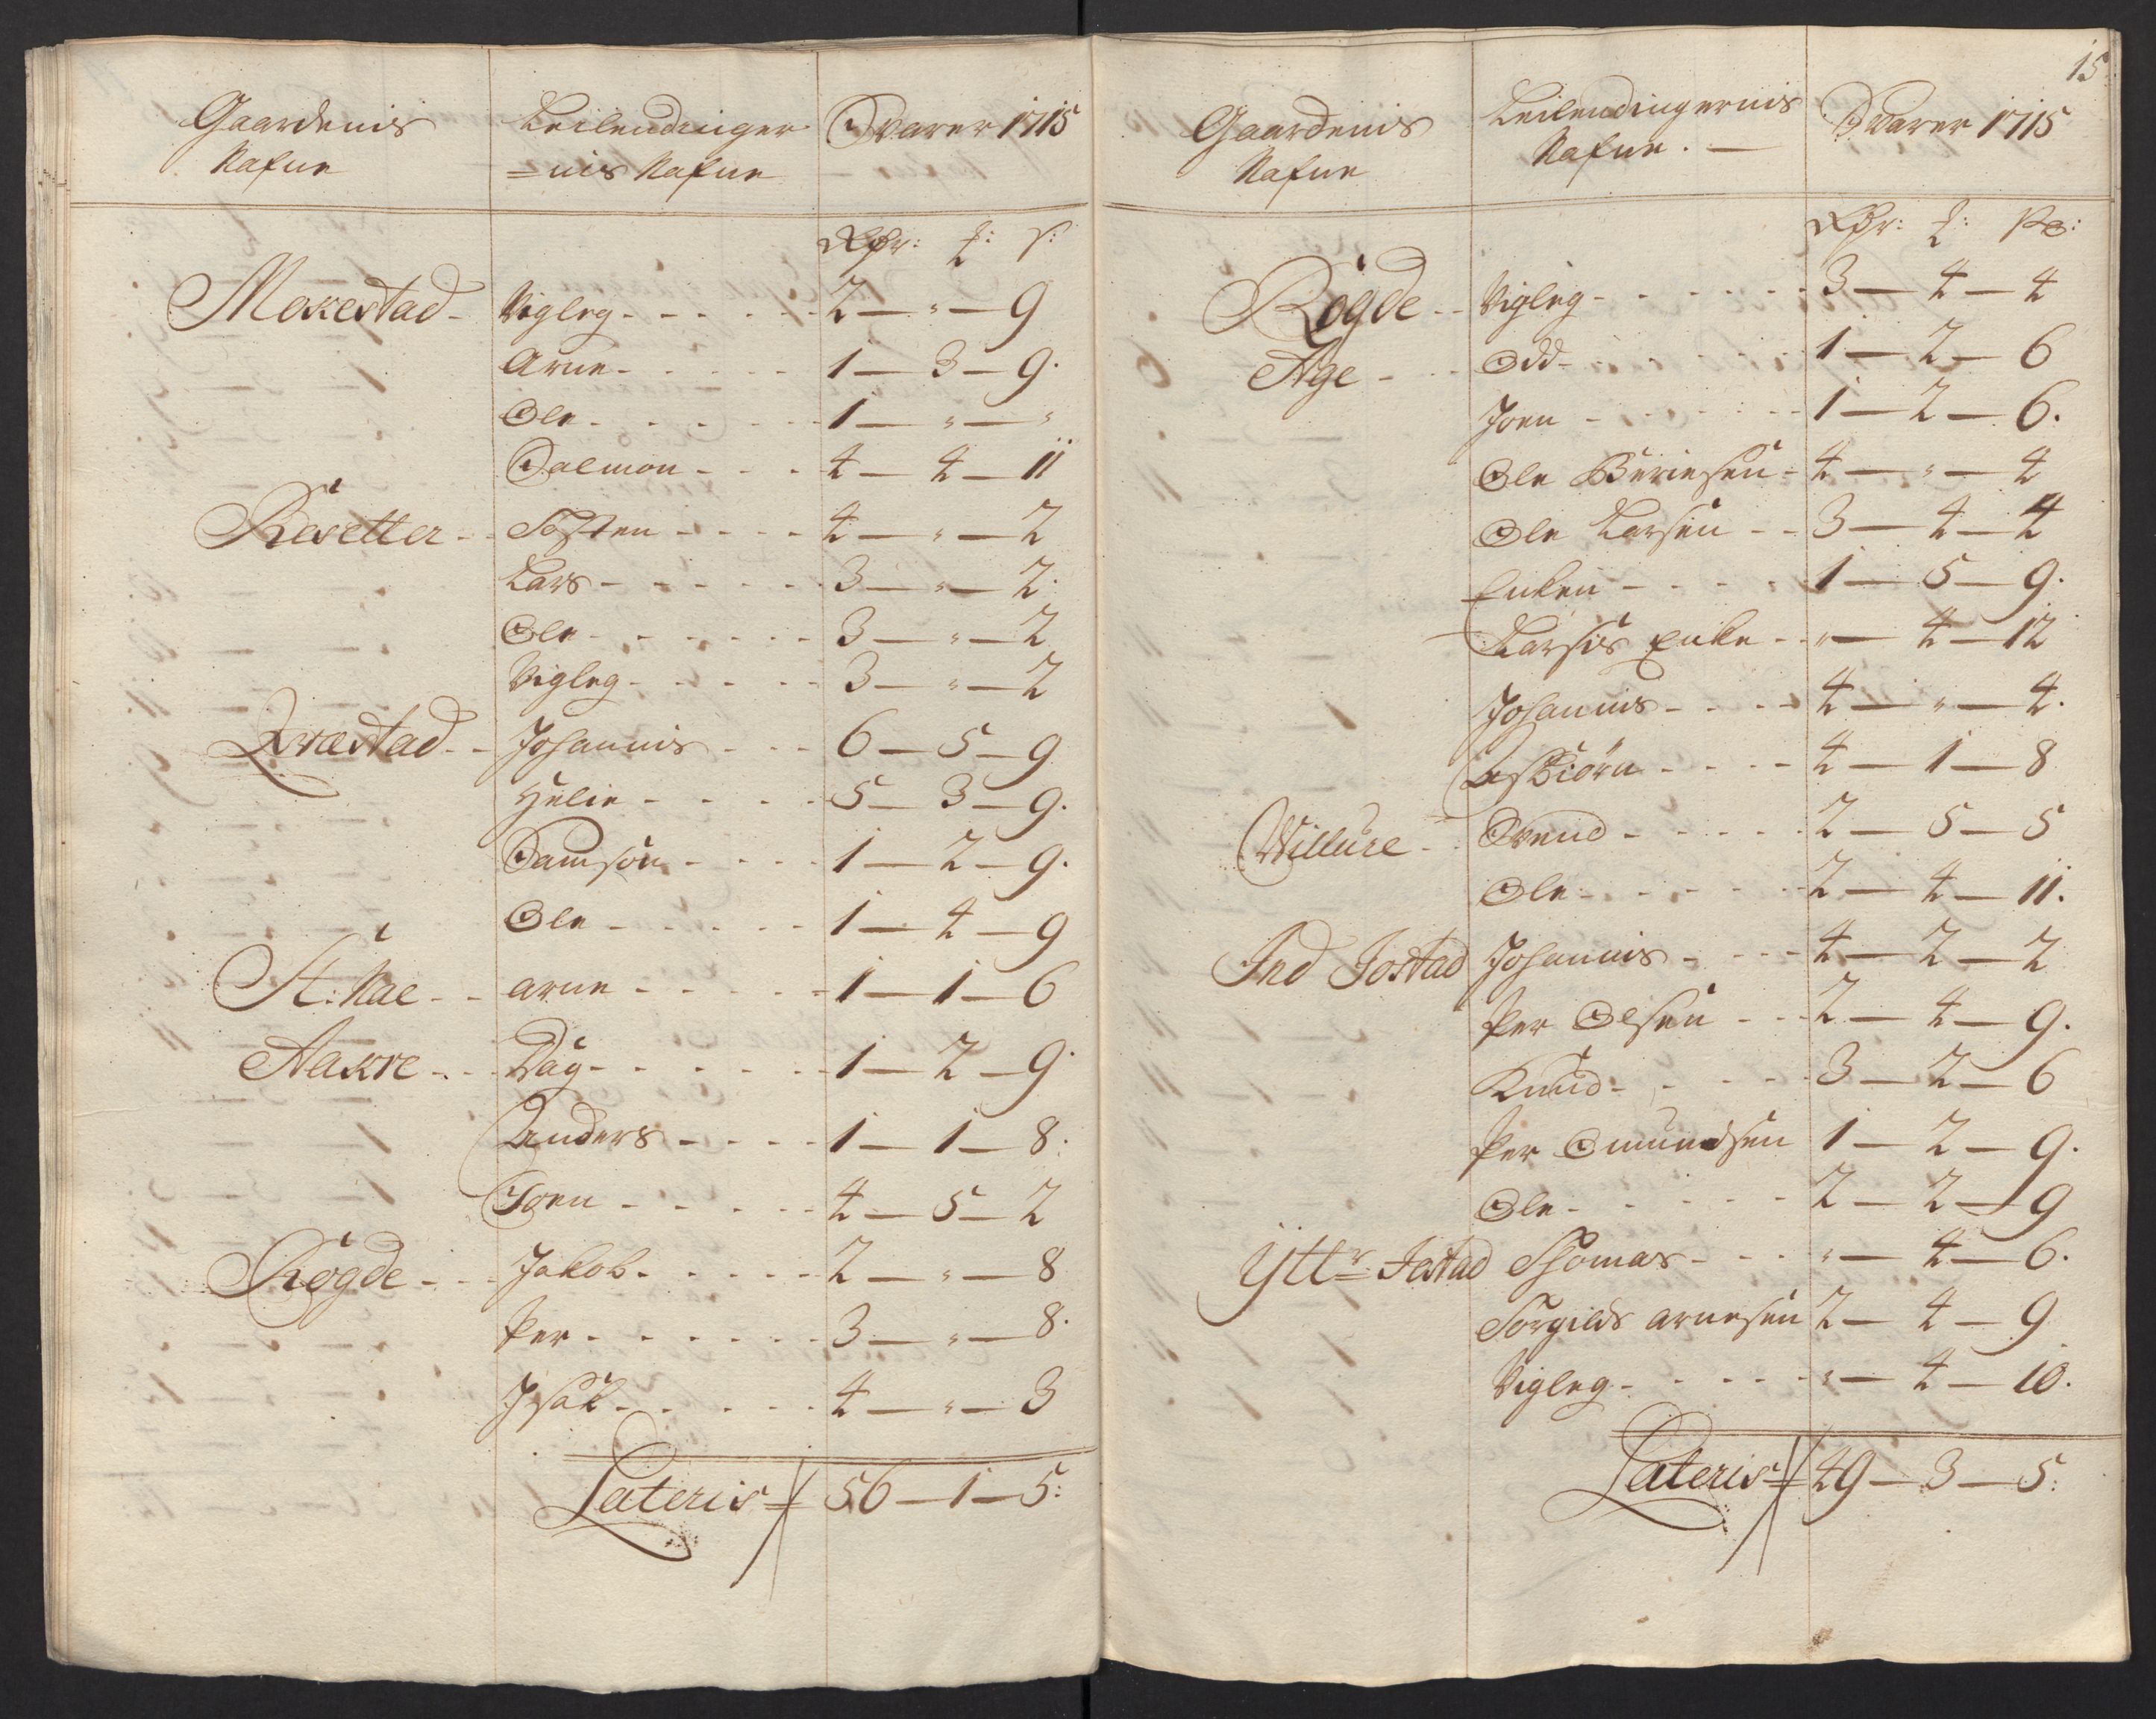 Gaardenis Nafne
Leilendinger =nis Nafne
Svarer 1715
Rdr: ₰: s:
Mokestad - Vigleg - 2 — " — 9
Arne - 1 — 3 — 9.
Ole - 1 — " — "
Salmon - 4 — 4 — 11
Resetter - Tosten - 4 — " — 2
Lars - 3 — " — 2.
Ole - 3 — " — 2
Vigleg - 3 — " — 2
Qvæstad - Johannis - 6 — 5 — 9
Helie - 5 — 3 — 9.
Samson - 1 — 2 — 9.
Ole - 1 — 4 — 9
St: Nae - arne - 1 — 1 — 6
Aakre - Dag - 1 — 2 — 9.
Anders - 1 — 1 — 8:
Joen - 4 — 5 — 2
Røgde - Jakob - 2 — " — 8
Per - 3 — " — 8.
Isak - 4 — " — 3
Lateris 56 — 1 — 5:
15
Gaardenis Nafne
Leilendingernis Nafne. —
Svarer 1715
Rdr: ₰: s:
Røgde - Vigleg - 3 — 4 — 4
Age - Odd - 1 — 2 — 6
Joen - 1 — 2 — 6.
Ole Børiesen - 4 — " — 4
Ole Larsen - 3 — 4 — 4
Enken - 1 — 5 — 9.
Larsis Enke - " — 4 — 12
Johannis - 4 — " — 4.
Asbiørn - 4 — 1 — 8
Willure - Svend - 2 — 5 — 5
Ole - 2 — 4 — 11.
Ind Jostad Johannis - 4 — 2 — 2
Per Olsen - 2 — 4 — 9.
Knud - 3 — 2 — 6
Per Omundsen 1 — 2 — 9.
Ole - 2 — 2 — 9
Yttr Jostad Thomas - " — 4 — 6.
Torgilds arnesen 2 — 4 — 9
Vigleg - " — 4 — 10.
Lateris 49 — 3 — 5: